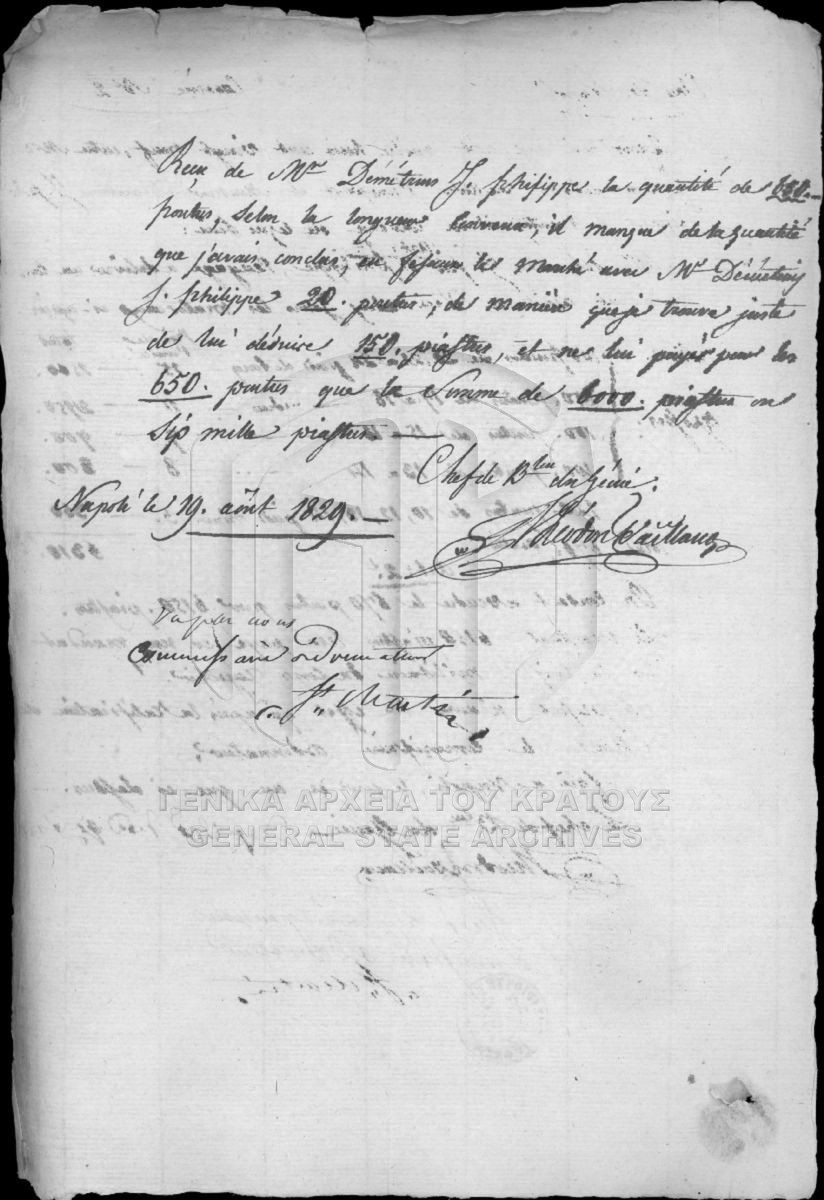 Recu de Mr Démétrius J. philippe la quantité de 650.
poutres, selon la longueur convenu, il manque de la quantité
que j'avais conclus, en fesant le marché avec Mr Démétrius
J. philippe 20. poutres, de manière que je trouve juste
de lui déduire 150. piastres, et ne lui payés pour les
650. poutres que la Somme de 6000. piastres ou
Six mille piastres.
Chef de Blon du Génie.
Napoli le 19. août 1829.
Théodore Vaillant
Vu par nous
Commissaire ordonnateur
St Martin
ΓΕΝΙΚΑ ΑΡΧΕΙΑ ΤΟΥ ΚΡΑΤΟΥΣ
GENERAL STATE ARCHIVES